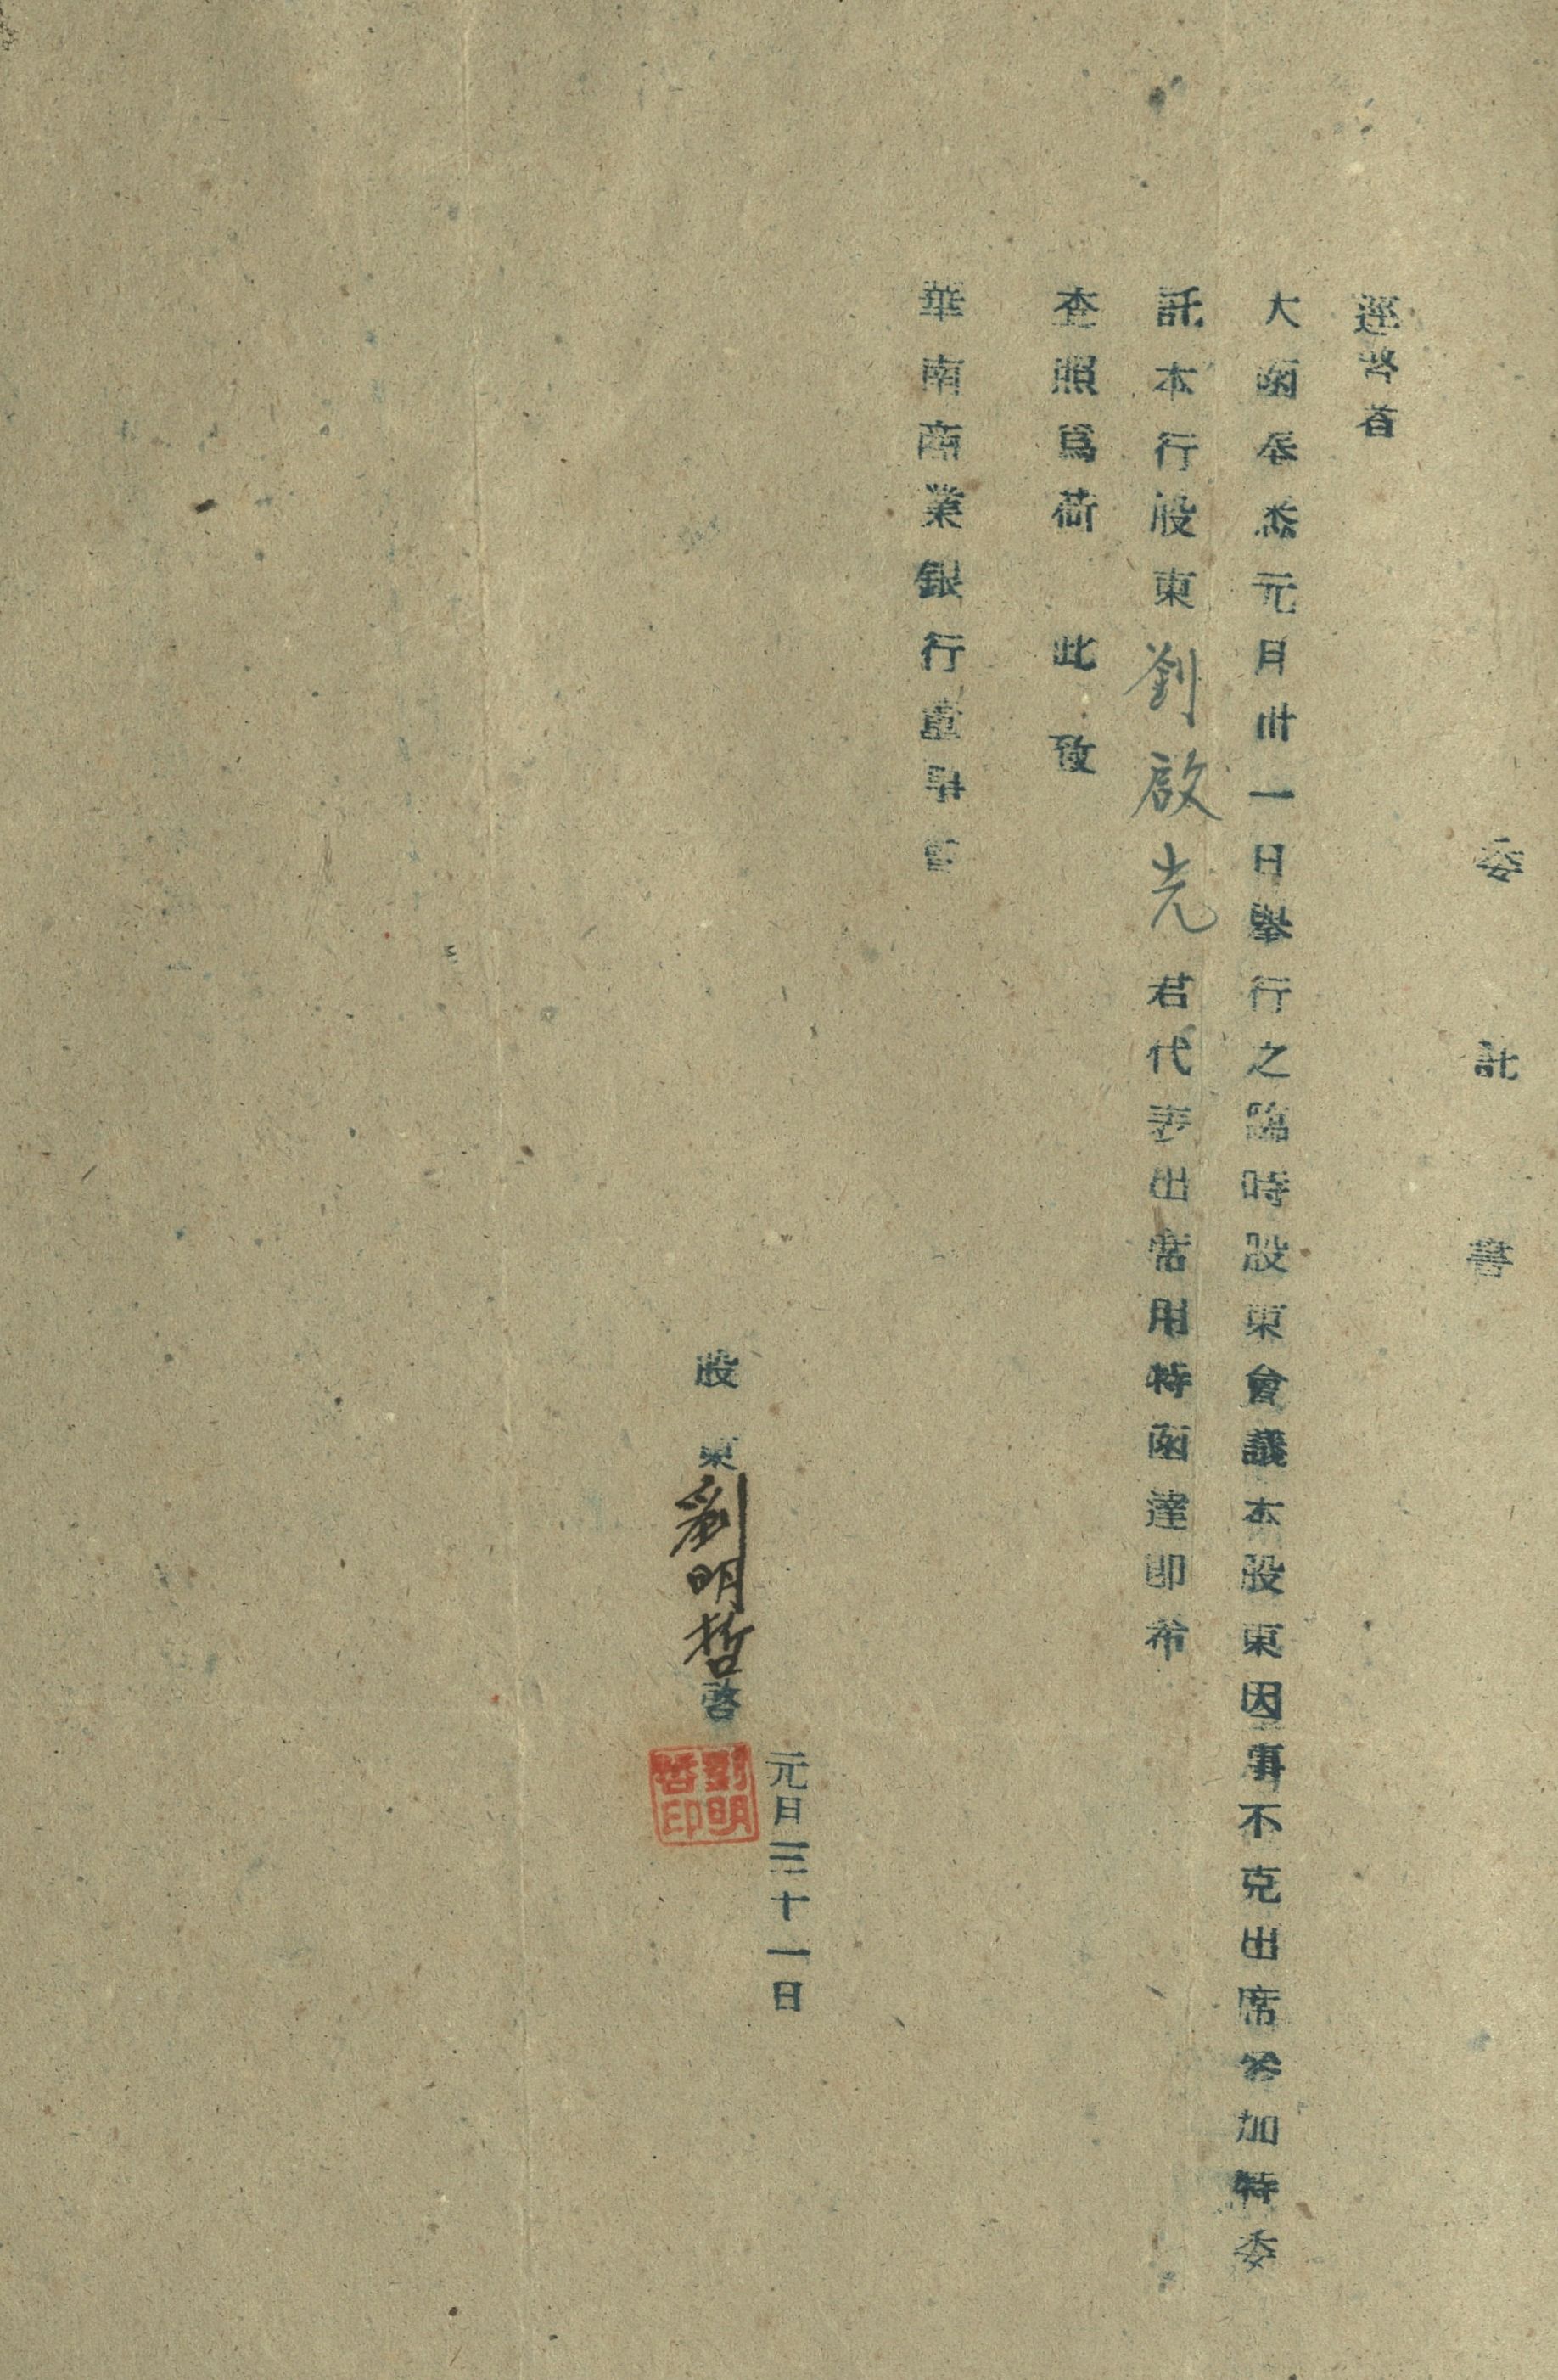 委託書
逕啓者
大函奉悉元月卅一日舉行之臨時股東會議本股東因事不克出席參加特委
託本行股東劉啟光君代表出席用特函達即希
查照為荷 此致
華南商業銀行董事會
元月三十一日
股東劉明哲啓
劉明哲印